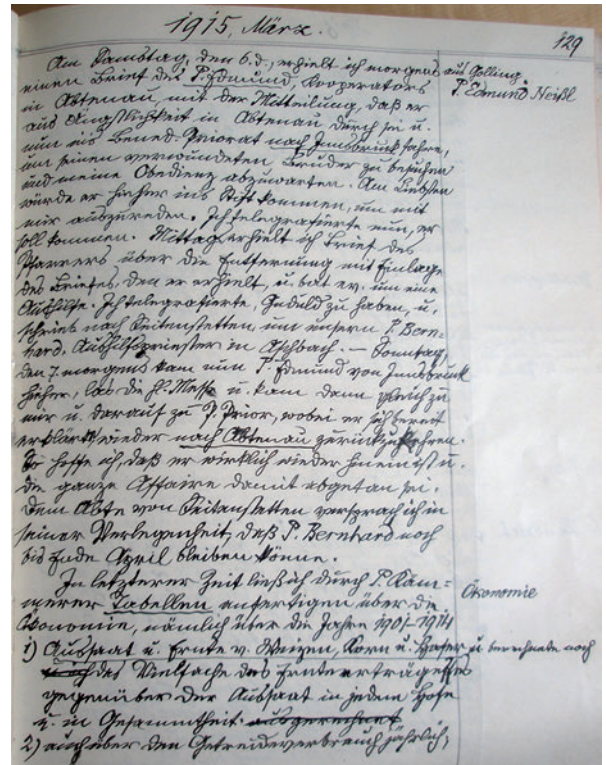 1915, März.
129
Am Samstag, den 6. d., erhielt ich morgens aus Golling
einen Brief des P. Edmund, Kooperators
P. Edmund Neißl
in Abtenau, mit der Mitteilung, daß er
aus Ängstlichkeit in Abtenau durch sei u.
nun ins Bened. Priorat nach Innsbruck fahre,
um seinen verwundeten Bruder zu besuchen
und meine Obedienz abzuwarten. Am liebsten
würde er hieher ins Stift kommen, um mit
mir auszureden. Ich telegrafierte nun, er
soll kommen. Mittag erhielt ich Brief des
Pfarrers über die Entfernung mit Einlage
des Briefes, den er erhielt, u. bat ev. um eine
Aushilfe. Ich telegrafierte, Geduld zu haben, u.
schrieb nach Seitenstetten, um unsern P. Bern-
hard, Aushilfspriester in Aschbach. — Sonntag,
den 7. morgens kam nun P. Edmund von Innsbruck
hieher, las die hl. Messe u. kam dann gleich zu
mir u. darauf zu P. Prior, wobei er sich bereit
erklärte, wieder nach Abtenau zurückzukehren.
So hoffe ich, daß er wirklich wieder hinein ist u.
die ganze Affaire damit abgetan sei.
Dem Abte von Seitenstetten versprach ich in
seiner Verlegenheit, daß P. Bernhard noch
bis Ende April bleiben könne.
In letzterer Zeit ließ ich durch P. Käm-
Ökonomie
merer Tabellen anfertigen über die
Ökonomie, nämlich über die Jahre 1901–1914
1) Aussaat u. Ernte v. Weizen, Korn u. Hafer u. berechnete noch
das Vielfache des Ernteerträgnisses
gegenüber der Aussaat in jedem Hofe
u. in Gesammtheit. ausgerechnet
2) auch über den Getreideverbrauch jährlich;